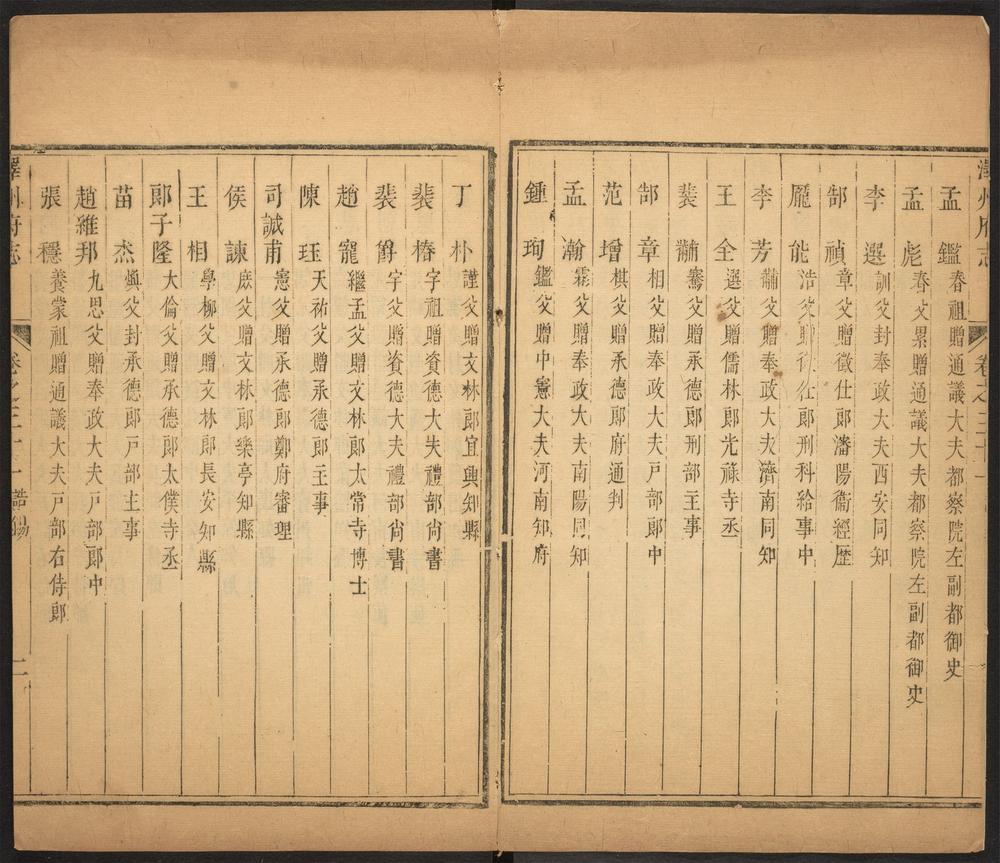 澤州府志 卷之三十一
孟鑑 春祖贈通議大夫都察院左副都御史
孟彪 春父累贈通議大夫都察院左副都御史
李選 訓父封奉政大夫西安同知
郜禎 章父贈徵仕郎瀋陽衞經歷
龐能 浩父贈徵仕郎刑科給事中
李芳 黼父贈奉政大夫濟南同知
王全 選父贈儒林郎光祿寺丞
裴黼 騫父贈承德郎刑部主事
郜章 相父贈奉政大夫戸部郎中
范增 棋父贈承德郎府通判
孟瀚 霦父贈奉政大夫南陽同知
鍾珣 鑑父贈中憲大夫河南知府
丁朴 謹父贈文林郎宜興知縣
裴椿 宇祖贈資德大夫禮部尙書
裴爵 宇父贈資德大夫禮部尙書
趙寵 繼孟父贈文林郎太常寺博士
陳珏 天祐父贈承德郎主事
司誠甫 憲父贈承德郎鄭府審理
侯諫 庶父贈文林郎樂亭知縣
王相 學柳父贈文林郎長安知縣
郞子隆 大倫父贈承德郎太僕寺丞
苗杰 煥父封承德郎戸部主事
趙維邦 九思父贈奉政大夫戸部郎中
張穩 養蒙祖贈通議大夫戸部右侍郎
澤州府志 卷之三十一 誥錫 二